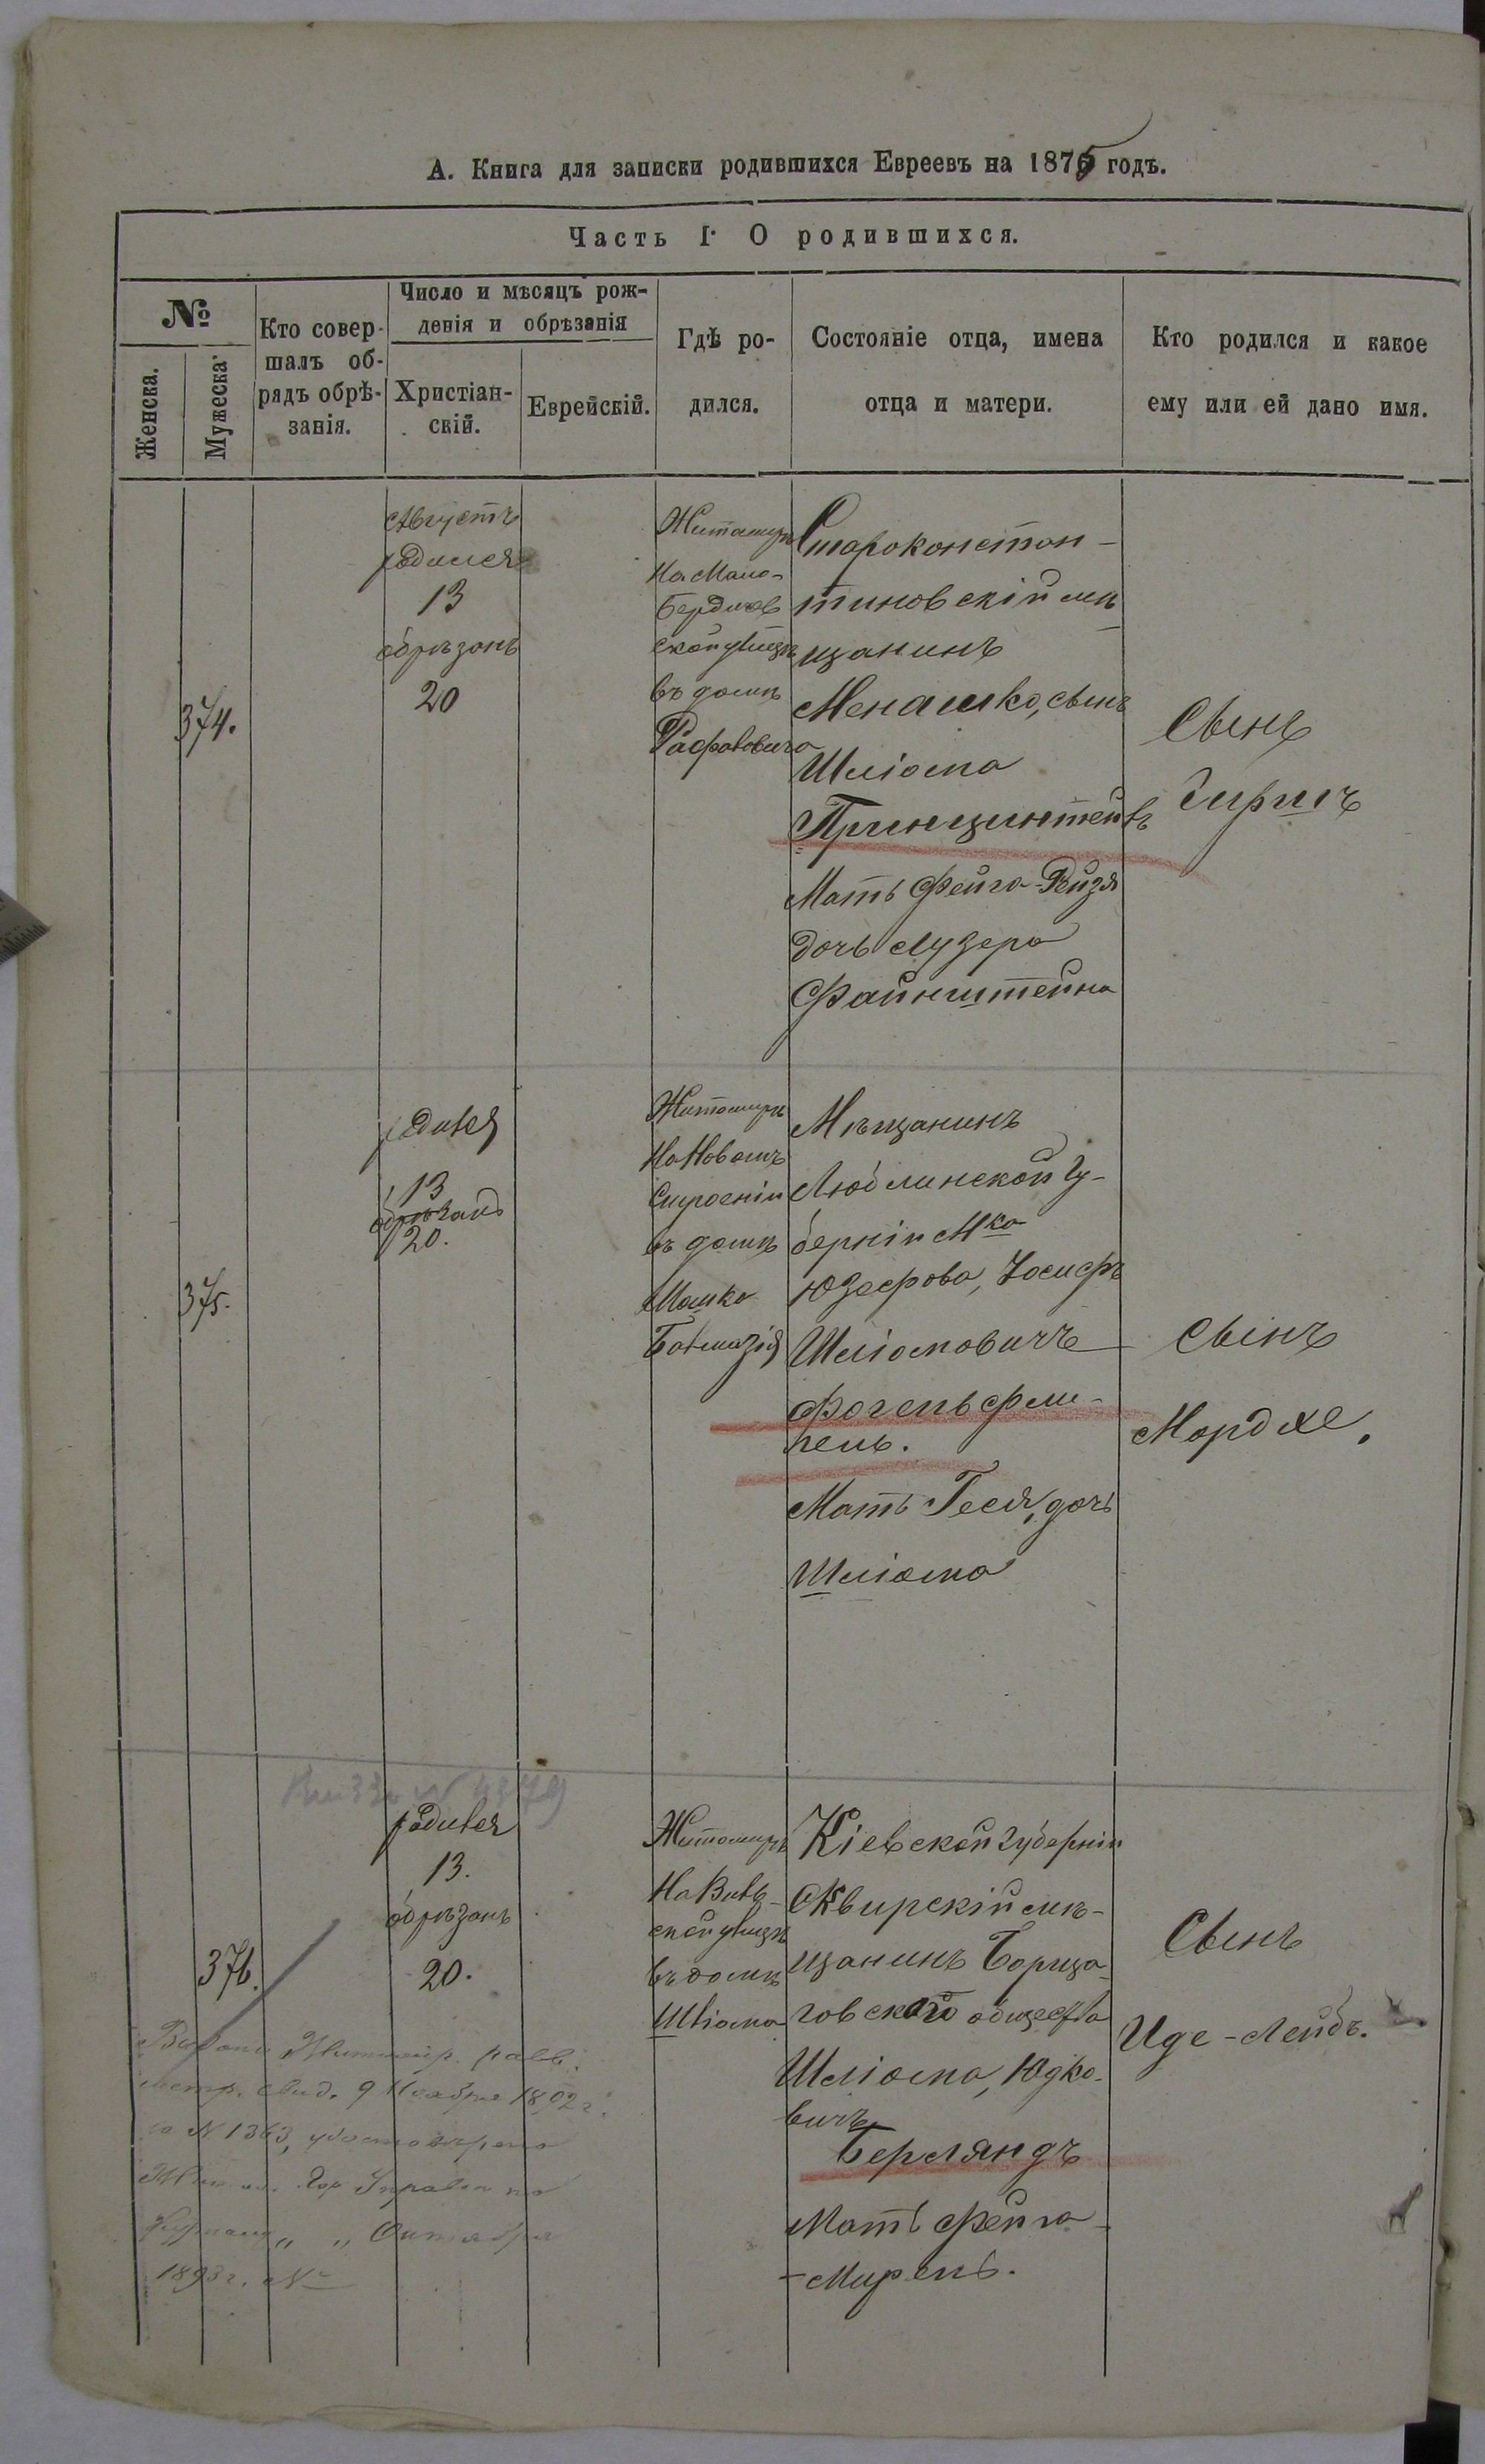 А. Книга для записки родившихся Евреевъ на 1875 годъ.
Часть I. О родившихся.
№
Женска.
Мужеска
Кто совер-
шалъ об-
рядъ обрѣ-
занія.
Число и мѣсяцъ рож-
денія и обрѣзанія
Христіан-
скій.
Еврейскій.
Гдѣ ро-
дился.
Состояніе отца, имена
отца и матери.
Кто родился и какое
ему или ей дано имя.
374.
Августъ
родился
13
обрѣзанъ
20
Житомиръ
На Мало-
Бердичев
ской улицѣ
въ домѣ
Староконстан-
тиновскій мѣ
щанинъ
Менашко, сынъ
Шліома
Принцинтейвъ
Мать Фейга-Рейзя
дочь Лузера
Файнштейна
Сынъ
Гиршъ
375.
родился
13
обрѣзанъ
20.
Житомиръ
На Новомъ
Строеніи
въ домѣ
Мошка
Мѣщанинъ
Люблинской Гу-
берніи М-ка
Юзефова, Іосифъ
Шліомовичъ
Фогельфли-
гель.
Мать Геся, дочь
Шліома
Сынъ
Мордхе.
376.
родился
13.
обрѣзанъ
20.
Житомиръ
На Виль-
ской улицѣ
въ домѣ
Шліома
Кіевской Губерніи
Сквирскій мѣ-
щанинъ Борща-
говскаго общества
Шліома, Юдко-
вичъ
Берляндъ
Мать Фейга-
-Мирель.
Сынъ
Иде-Лейбъ.
Житомир. равв.
метр. свид. 9 Ноября 1892 г.
за № 1363, удостоверено
Октября
1893 г. №